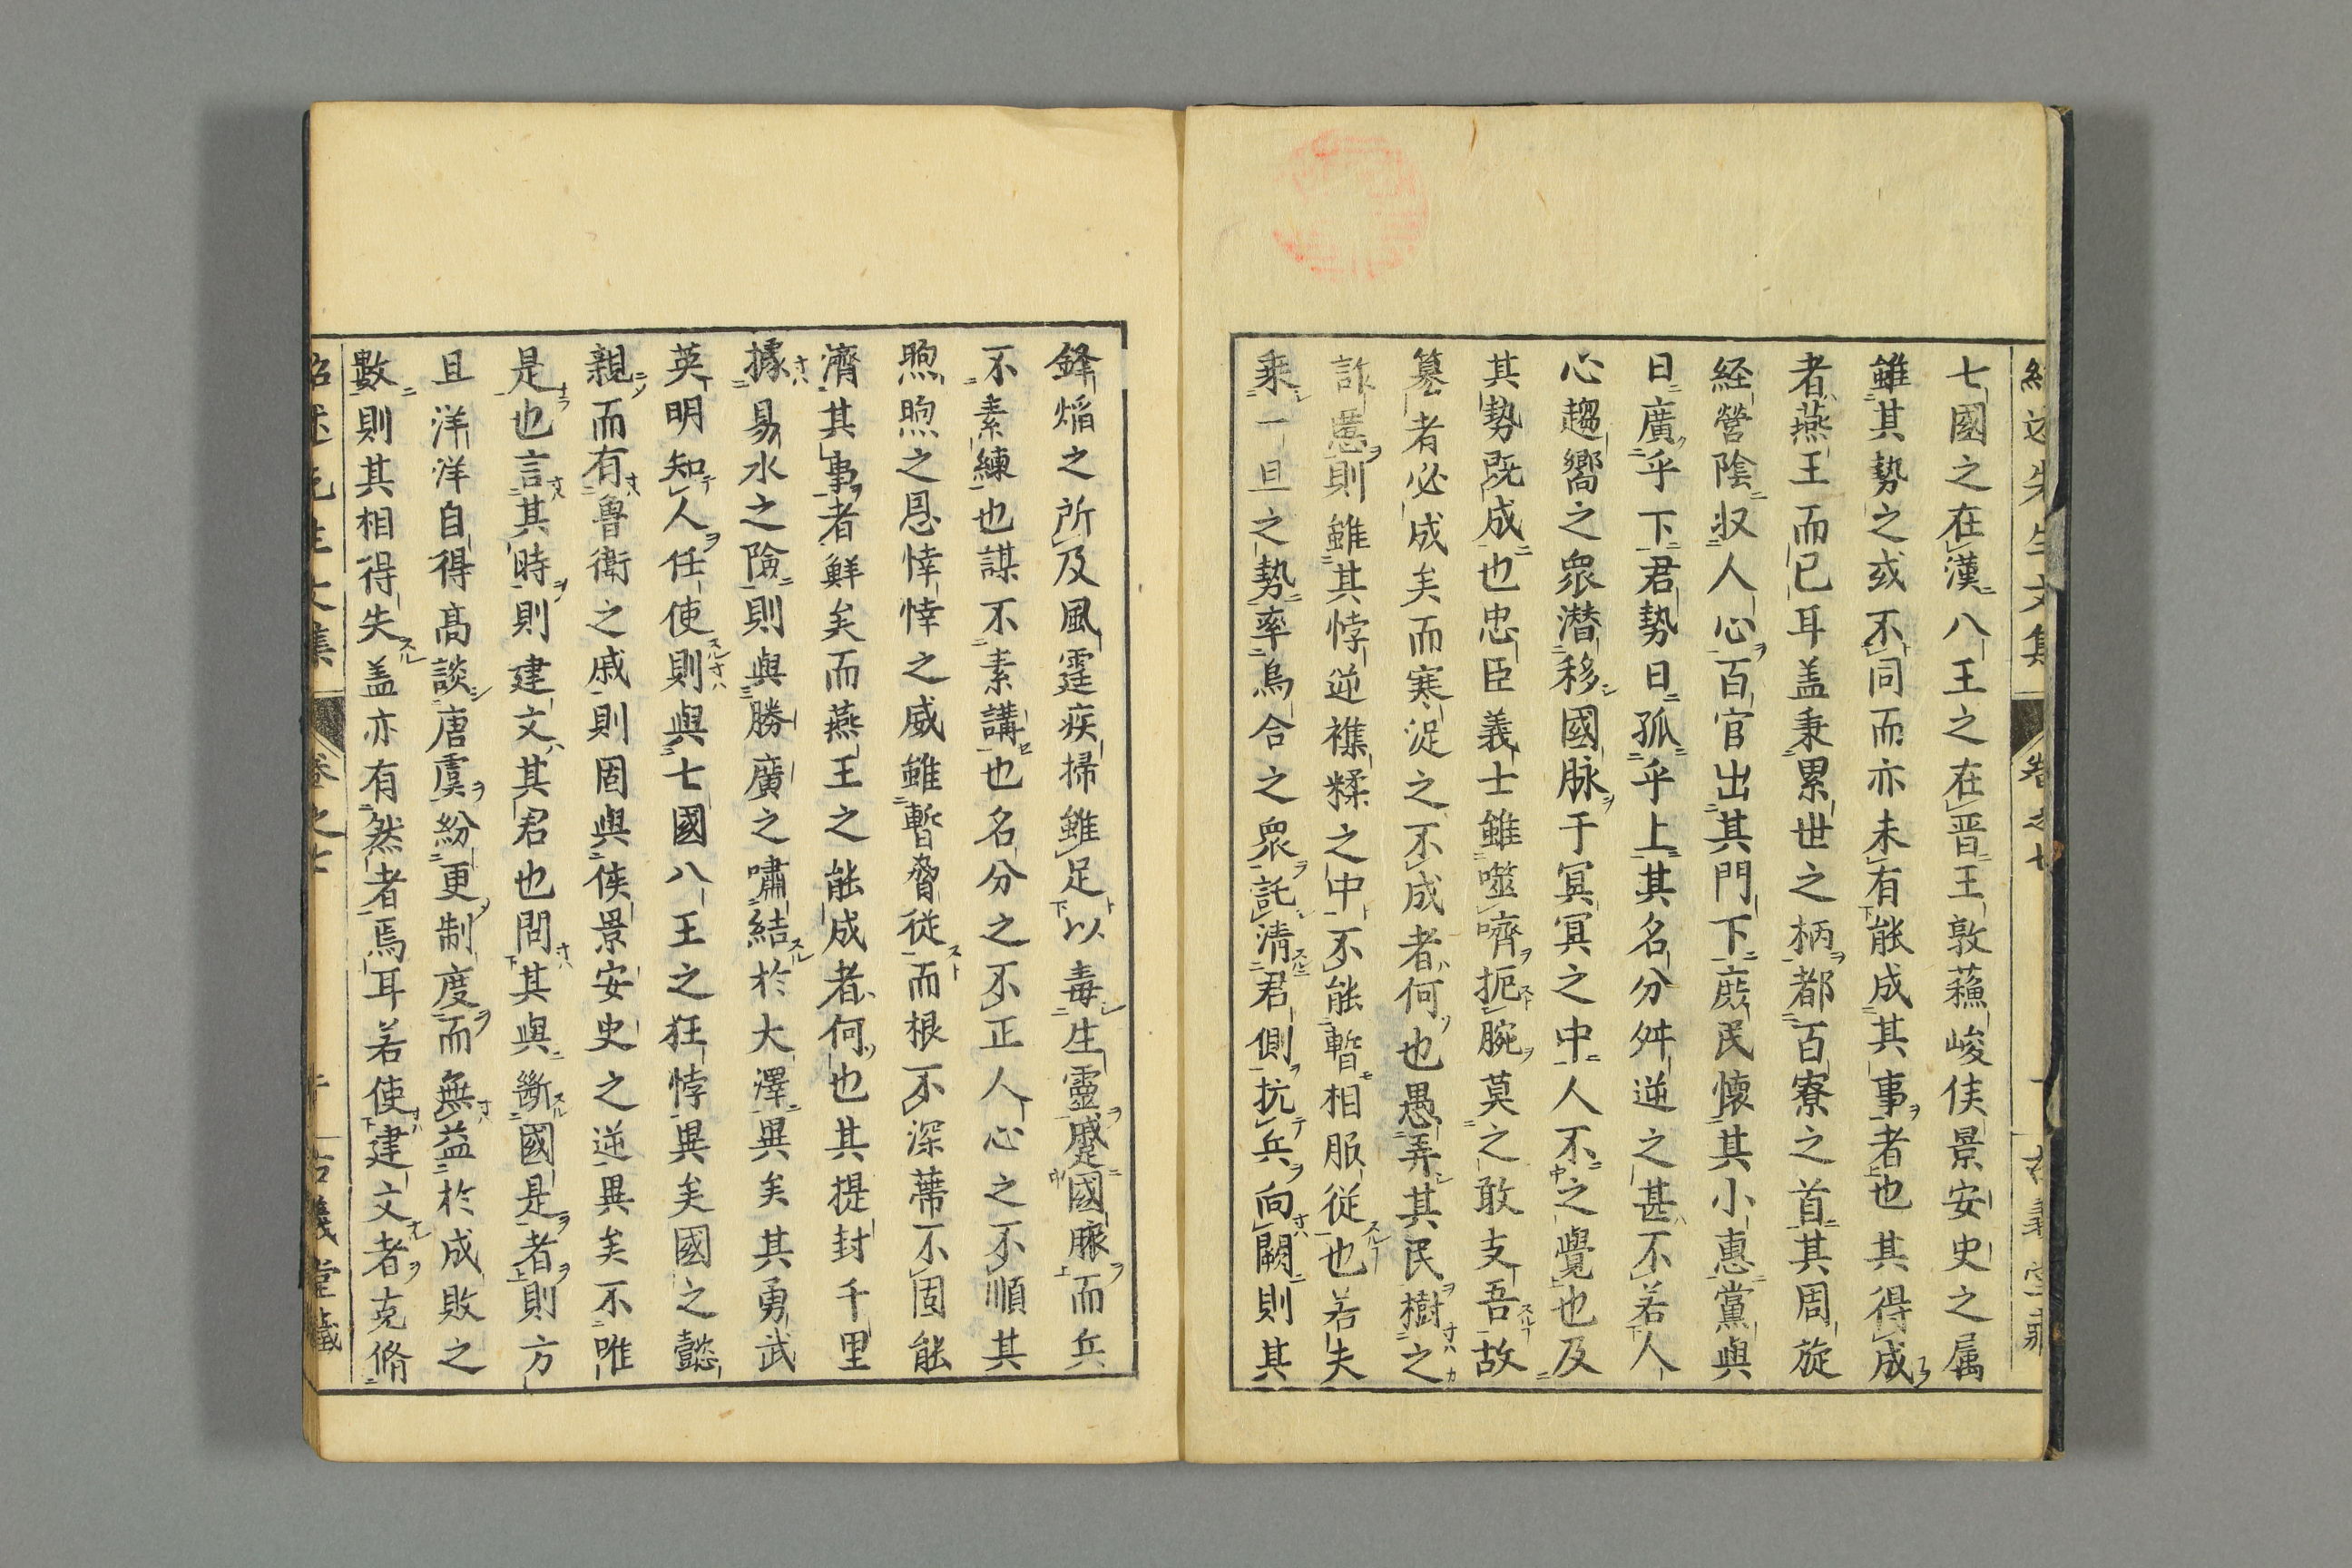 紹述先生文集 卷之七 古義堂藏
七國之在漢八王之在晋王敦蘓峻侯景安史之属
雖其勢之或不同而亦未有能成其事者也其得成
者燕王而已耳盖秉累世之柄都百寮之首其周旋
経營陰収人心百官出其門下庶民懐其小惠黨與
日廣乎下君勢日孤乎上其名分舛逆之甚不若人
心趨嚮之衆潜移國脉于冥冥之中人不之覺也及
其勢既成也忠臣義士雖噬嚌扼腕莫之敢支吾故
簒者必成矣而寒浞之不成者何也愚弄其民樹之
詐慝則雖其悖逆襍糅之中不能暫相服従也若夫
乗一旦之勢率烏合之衆託清君側抗兵向闕則其
鋒熖之所及風霆疾掃雖足以毒生靈蹙國脈而兵
不素練也謀不素講也名分之不正人心之不順其
煦煦之恩悻悻之威雖暫脅從而根不深蔕不固能
濟其事者鮮矣而燕王之能成者何也其提封千里
據易水之險則與勝廣之嘯結於大澤異矣其勇武
英明知人任使則與七國八王之狂悖異矣國之懿
親而有魯衛之戚則固與侯景安史之逆異矣不唯
是也言其時則建文其君也問其與斷國是者則方
且洋洋自得高談唐虞紛更制度而無益於成敗之
數則其相得失盖亦有然者焉耳若使建文者克脩
紹述先生文集 卷之七 古義堂藏